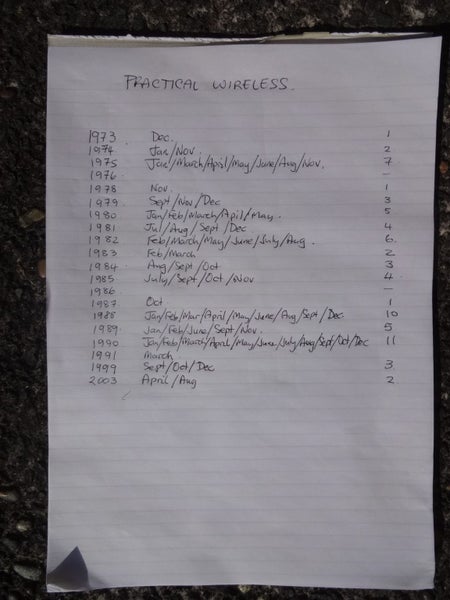 PRACTICAL WIRELESS.
1973 Dec. 1
1974 Jan/Nov. 2
1975 Jan/March/April/May/June/Aug/Nov. 7
1976 —
1978 Nov. 1
1979 Sept/Nov/Dec 3
1980 Jan/Feb/March/April/May. 5
1981 Jul/Aug/Sept/Dec 4
1982 Feb/March/May/June/July/Aug. 6
1983 Feb/March 2
1984 Aug/Sept/Oct 3
1985 July/Sept/Oct/Nov 4
1986 —
1987 Oct 1
1988 Jan/Feb/Mar/April/May/June/Aug/Sept/Dec 10
1989 Jan/Feb/June/Sept/Nov. 5
1990 Jan/Feb/March/April/May/June/July/Aug/Sept/Oct/Dec 11
1991 March
1999 Sept/Oct/Dec 3
2003 April/Aug 2